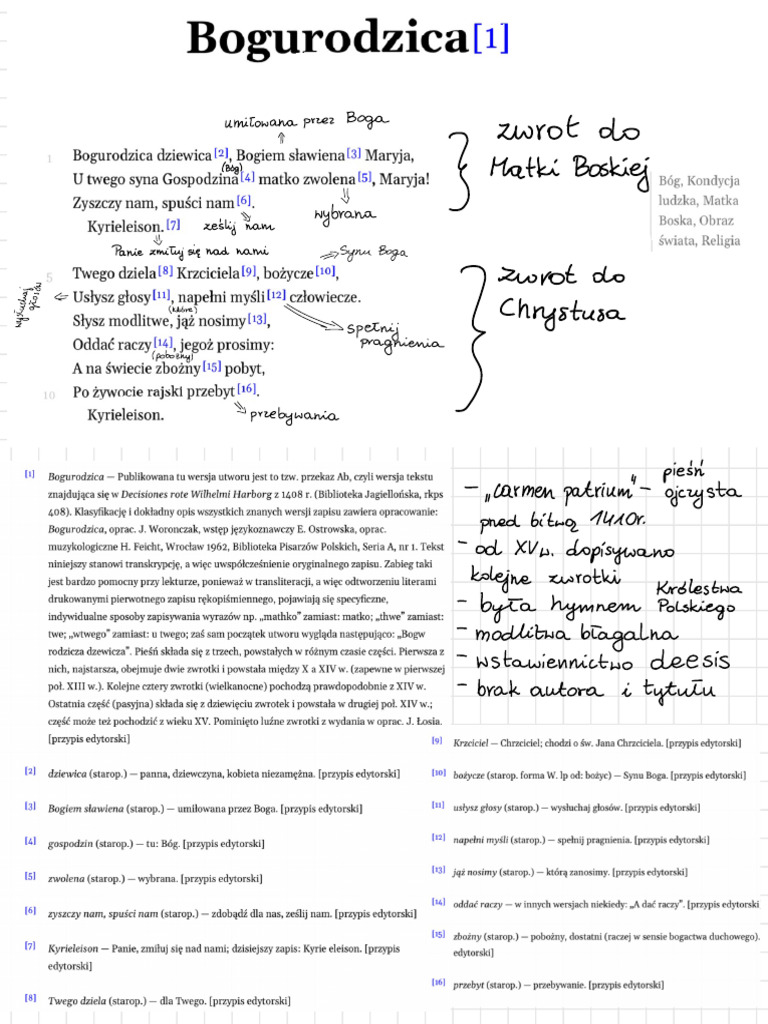 Bogurodzica[1]
umiłowana przez Boga
1 Bogurodzica dziewica [2], Bogiem sławiena [3] Maryja,
(Bóg)
U twego syna Gospodzina [4] matko zwolena [5], Maryja!
Zyszczy nam, spuści nam [6].
wybrana
Kyrieleison. [7]
ześlij nam
Panie zmiłuj się nad nami
Synu Boga
zwrot do
Matki Boskiej
Bóg, Kondycja
ludzka, Matka
Boska, Obraz
świata, Religia
5 Twego dziela [8] Krzciciela [9], bożycze [10],
wysłuchaj
głosów
Usłysz głosy [11], napełni myśli [12] człowiecze.
(które)
Słysz modlitwę, jąż nosimy [13],
spełnij
pragnienia
Oddać raczy [14], jegoż prosimy:
(pobożny)
A na świecie zbożny [15] pobyt,
10 Po żywocie rajski przebyt [16].
przebywania
Kyrieleison.
zwrot do
Chrystusa
[1] Bogurodzica — Publikowana tu wersja utworu jest to tzw. przekaz Ab, czyli wersja tekstu
znajdująca się w Decisiones rote Wilhelmi Harborg z 1408 r. (Biblioteka Jagiellońska, rkps
408). Klasyfikację i dokładny opis wszystkich znanych wersji zapisu zawiera opracowanie:
Bogurodzica, oprac. J. Woronczak, wstęp językoznawczy E. Ostrowska, oprac.
muzykologiczne H. Feicht, Wrocław 1962, Biblioteka Pisarzów Polskich, Seria A, nr 1. Tekst
niniejszy stanowi transkrypcję, a więc uwspółcześnienie oryginalnego zapisu. Zabieg taki
jest bardzo pomocny przy lekturze, ponieważ w transliteracji, a więc odtworzeniu literami
drukowanymi pierwotnego zapisu rękopiśmiennego, pojawiają się specyficzne,
indywidualne sposoby zapisywania wyrazów np. „mathko” zamiast: matko; „thwe” zamiast:
twe; „wtwego” zamiast: u twego; zaś sam początek utworu wygląda następująco: „Bogw
rodzicza dzewicza”. Pieśń składa się z trzech, powstałych w różnym czasie części. Pierwsza z
nich, najstarsza, obejmuje dwie zwrotki i powstała między X a XIV w. (zapewne w pierwszej
poł. XIII w.). Kolejne cztery zwrotki (wielkanocne) pochodzą prawdopodobnie z XIV w.
Ostatnia część (pasyjna) składa się z dziewięciu zwrotek i powstała w drugiej poł. XIV w.;
część może też pochodzić z wieku XV. Pominięto luźne zwrotki z wydania w oprac. J. Łosia.
[przypis edytorski]
- „carmen patrium” - pieśń
ojczysta
pned bitwą 1410r.
- od XVw. dopisywano
kolejne zwrotki
- była hymnem Królestwa
Polskiego
- modlitwa błagalna
- wstawiennictwo deesis
- brak autora i tytułu
[2] dziewica (starop.) — panna, dziewczyna, kobieta niezamężna. [przypis edytorski]
[3] Bogiem sławiena (starop.) — umiłowana przez Boga. [przypis edytorski]
[4] gospodzin (starop.) — tu: Bóg. [przypis edytorski]
[5] zwolena (starop.) — wybrana. [przypis edytorski]
[6] zyszczy nam, spuści nam (starop.) — zdobądź dla nas, ześlij nam. [przypis edytorski]
[7] Kyrieleison — Panie, zmiłuj się nad nami; dzisiejszy zapis: Kyrie eleison. [przypis
edytorski]
[8] Twego dziela (starop.) — dla Twego. [przypis edytorski]
[9] Krzciciel — Chrzciciel; chodzi o św. Jana Chrzciciela. [przypis edytorski]
[10] bożycze (starop. forma W. lp od: bożyc) — Synu Boga. [przypis edytorski]
[11] usłysz głosy (starop.) — wysłuchaj głosów. [przypis edytorski]
[12] napełni myśli (starop.) — spełnij pragnienia. [przypis edytorski]
[13] jąż nosimy (starop.) — którą zanosimy. [przypis edytorski]
[14] oddać raczy — w innych wersjach niekiedy: „A dać raczy”. [przypis edytorski
[15] zbożny (starop.) — pobożny, dostatni (raczej w sensie bogactwa duchowego).
edytorski]
[16] przebyt (starop.) — przebywanie. [przypis edytorski]